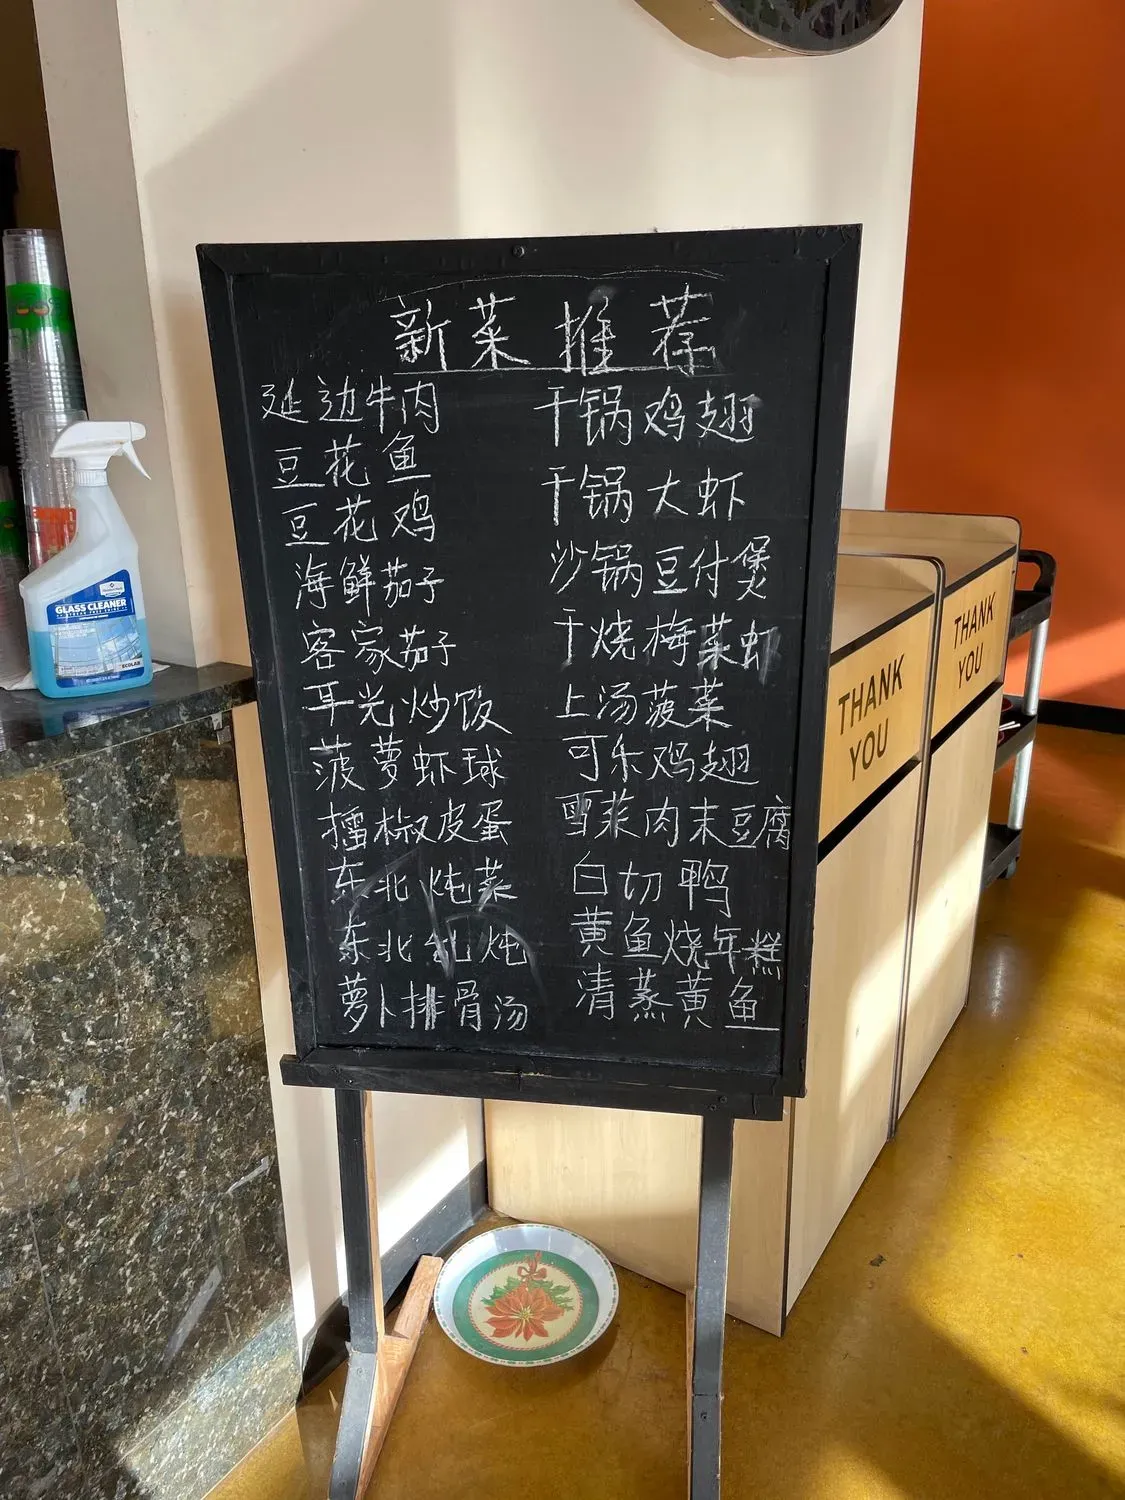 新菜推荐
延边牛肉
豆花鱼
豆花鸡
海鲜茄子
客家茄子
耳光炒饭
菠萝虾球
擂椒皮蛋
东北炖菜
东北乱炖
萝卜排骨汤
干锅鸡翅
干锅大虾
沙锅豆付煲
干烧梅菜虾
上汤菠菜
可乐鸡翅
雪菜肉末豆腐
白切鸭
黄鱼烧年糕
清蒸黄鱼
GLASS CLEANER
ECOLAB
THANK
YOU
THANK
YOU